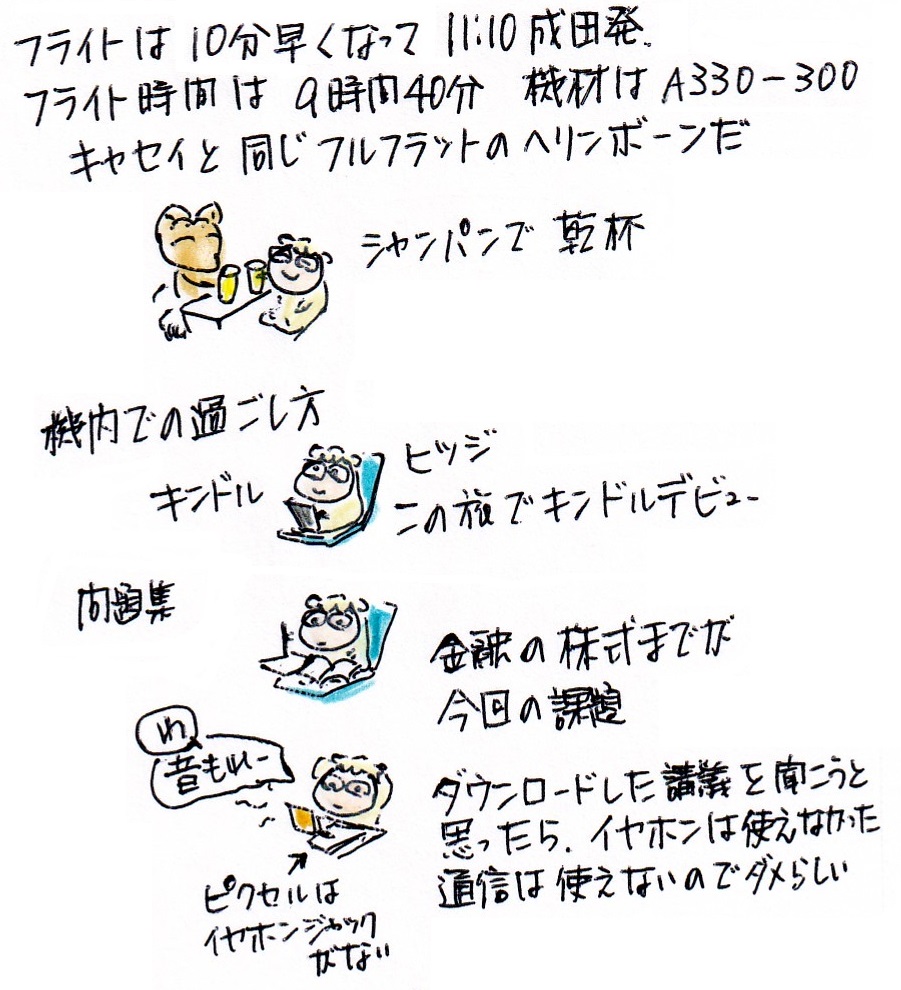 フライトは10分早くなって 11:10成田発.
フライト時間は 9時間40分 機材はA330-300
キャセイと同じフルフラットのヘリンボーンだ
シャンパンで乾杯
機内での過ごし方
キンドル
ヒツジ
この旅でキンドルデビュー
問題集
金融の株式までが
今回の課題
わ
音もれー
ダウンロードした講義を聞こうと
思ったら、イヤホンは使えなかった
通信は使えないのでダメらしい
ピクセルは
イヤホンジャック
がない